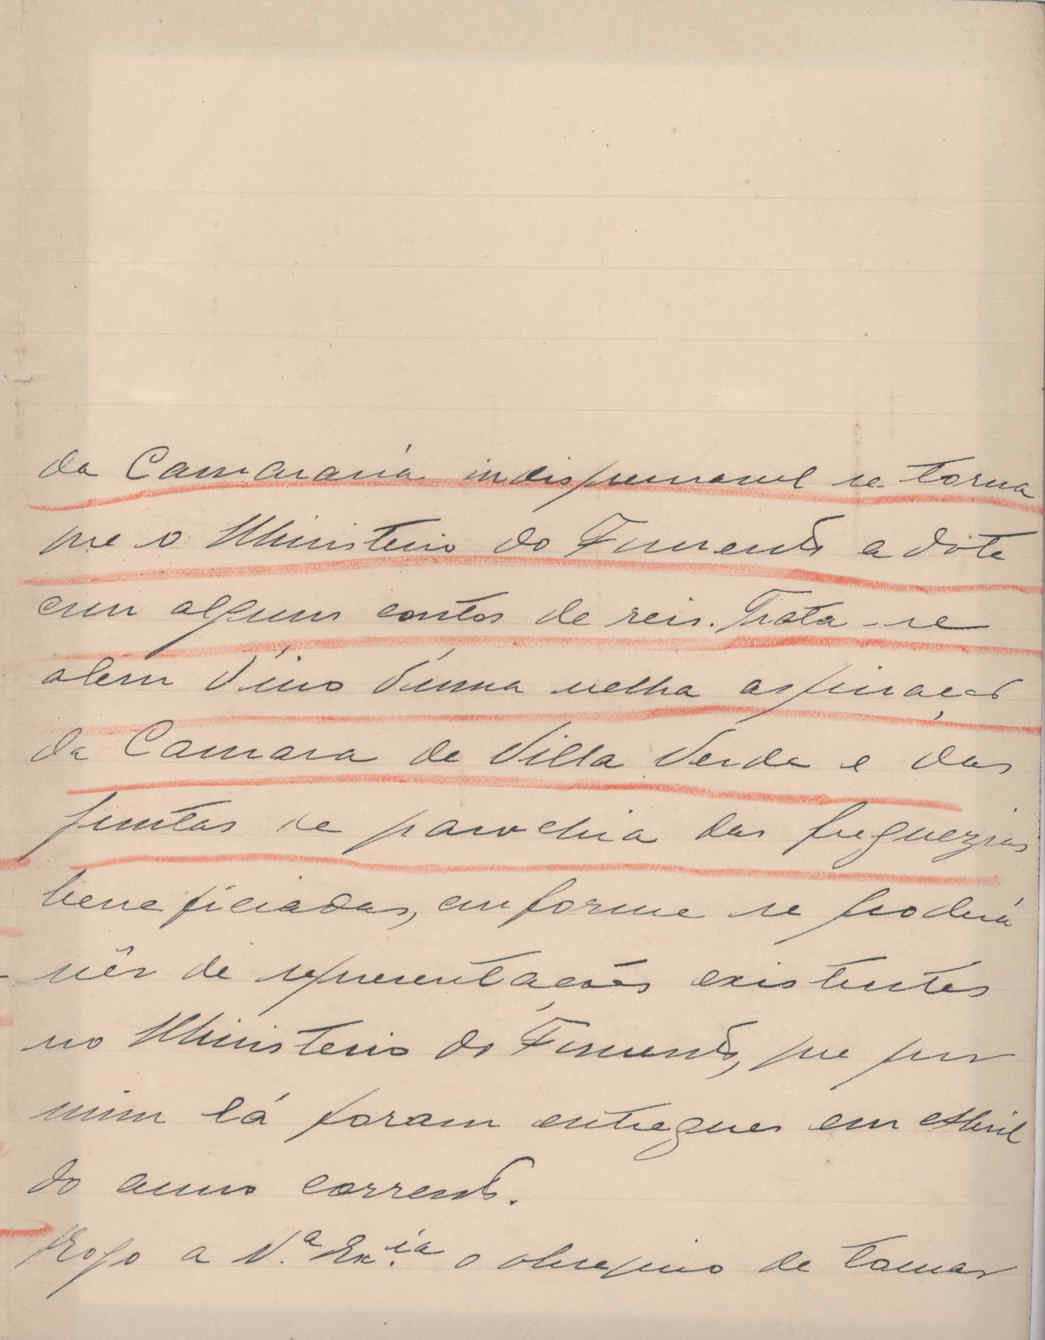 da Camararia indispensavel se torna
que o Ministerio do Fomento a dote
com alguns contos de reis. Trata-se
alem d'isso d'uma velha aspiração
da Camara de Villa Verde e das
juntas de parochia das freguezias
beneficiadas, conforme se poderá
vêr de representações existentes
no Ministerio do Fomento, que por
mim lá foram entregues em Abril
do anno corrente.
Rogo a V.ª Ex.ia o obsequio de tomar